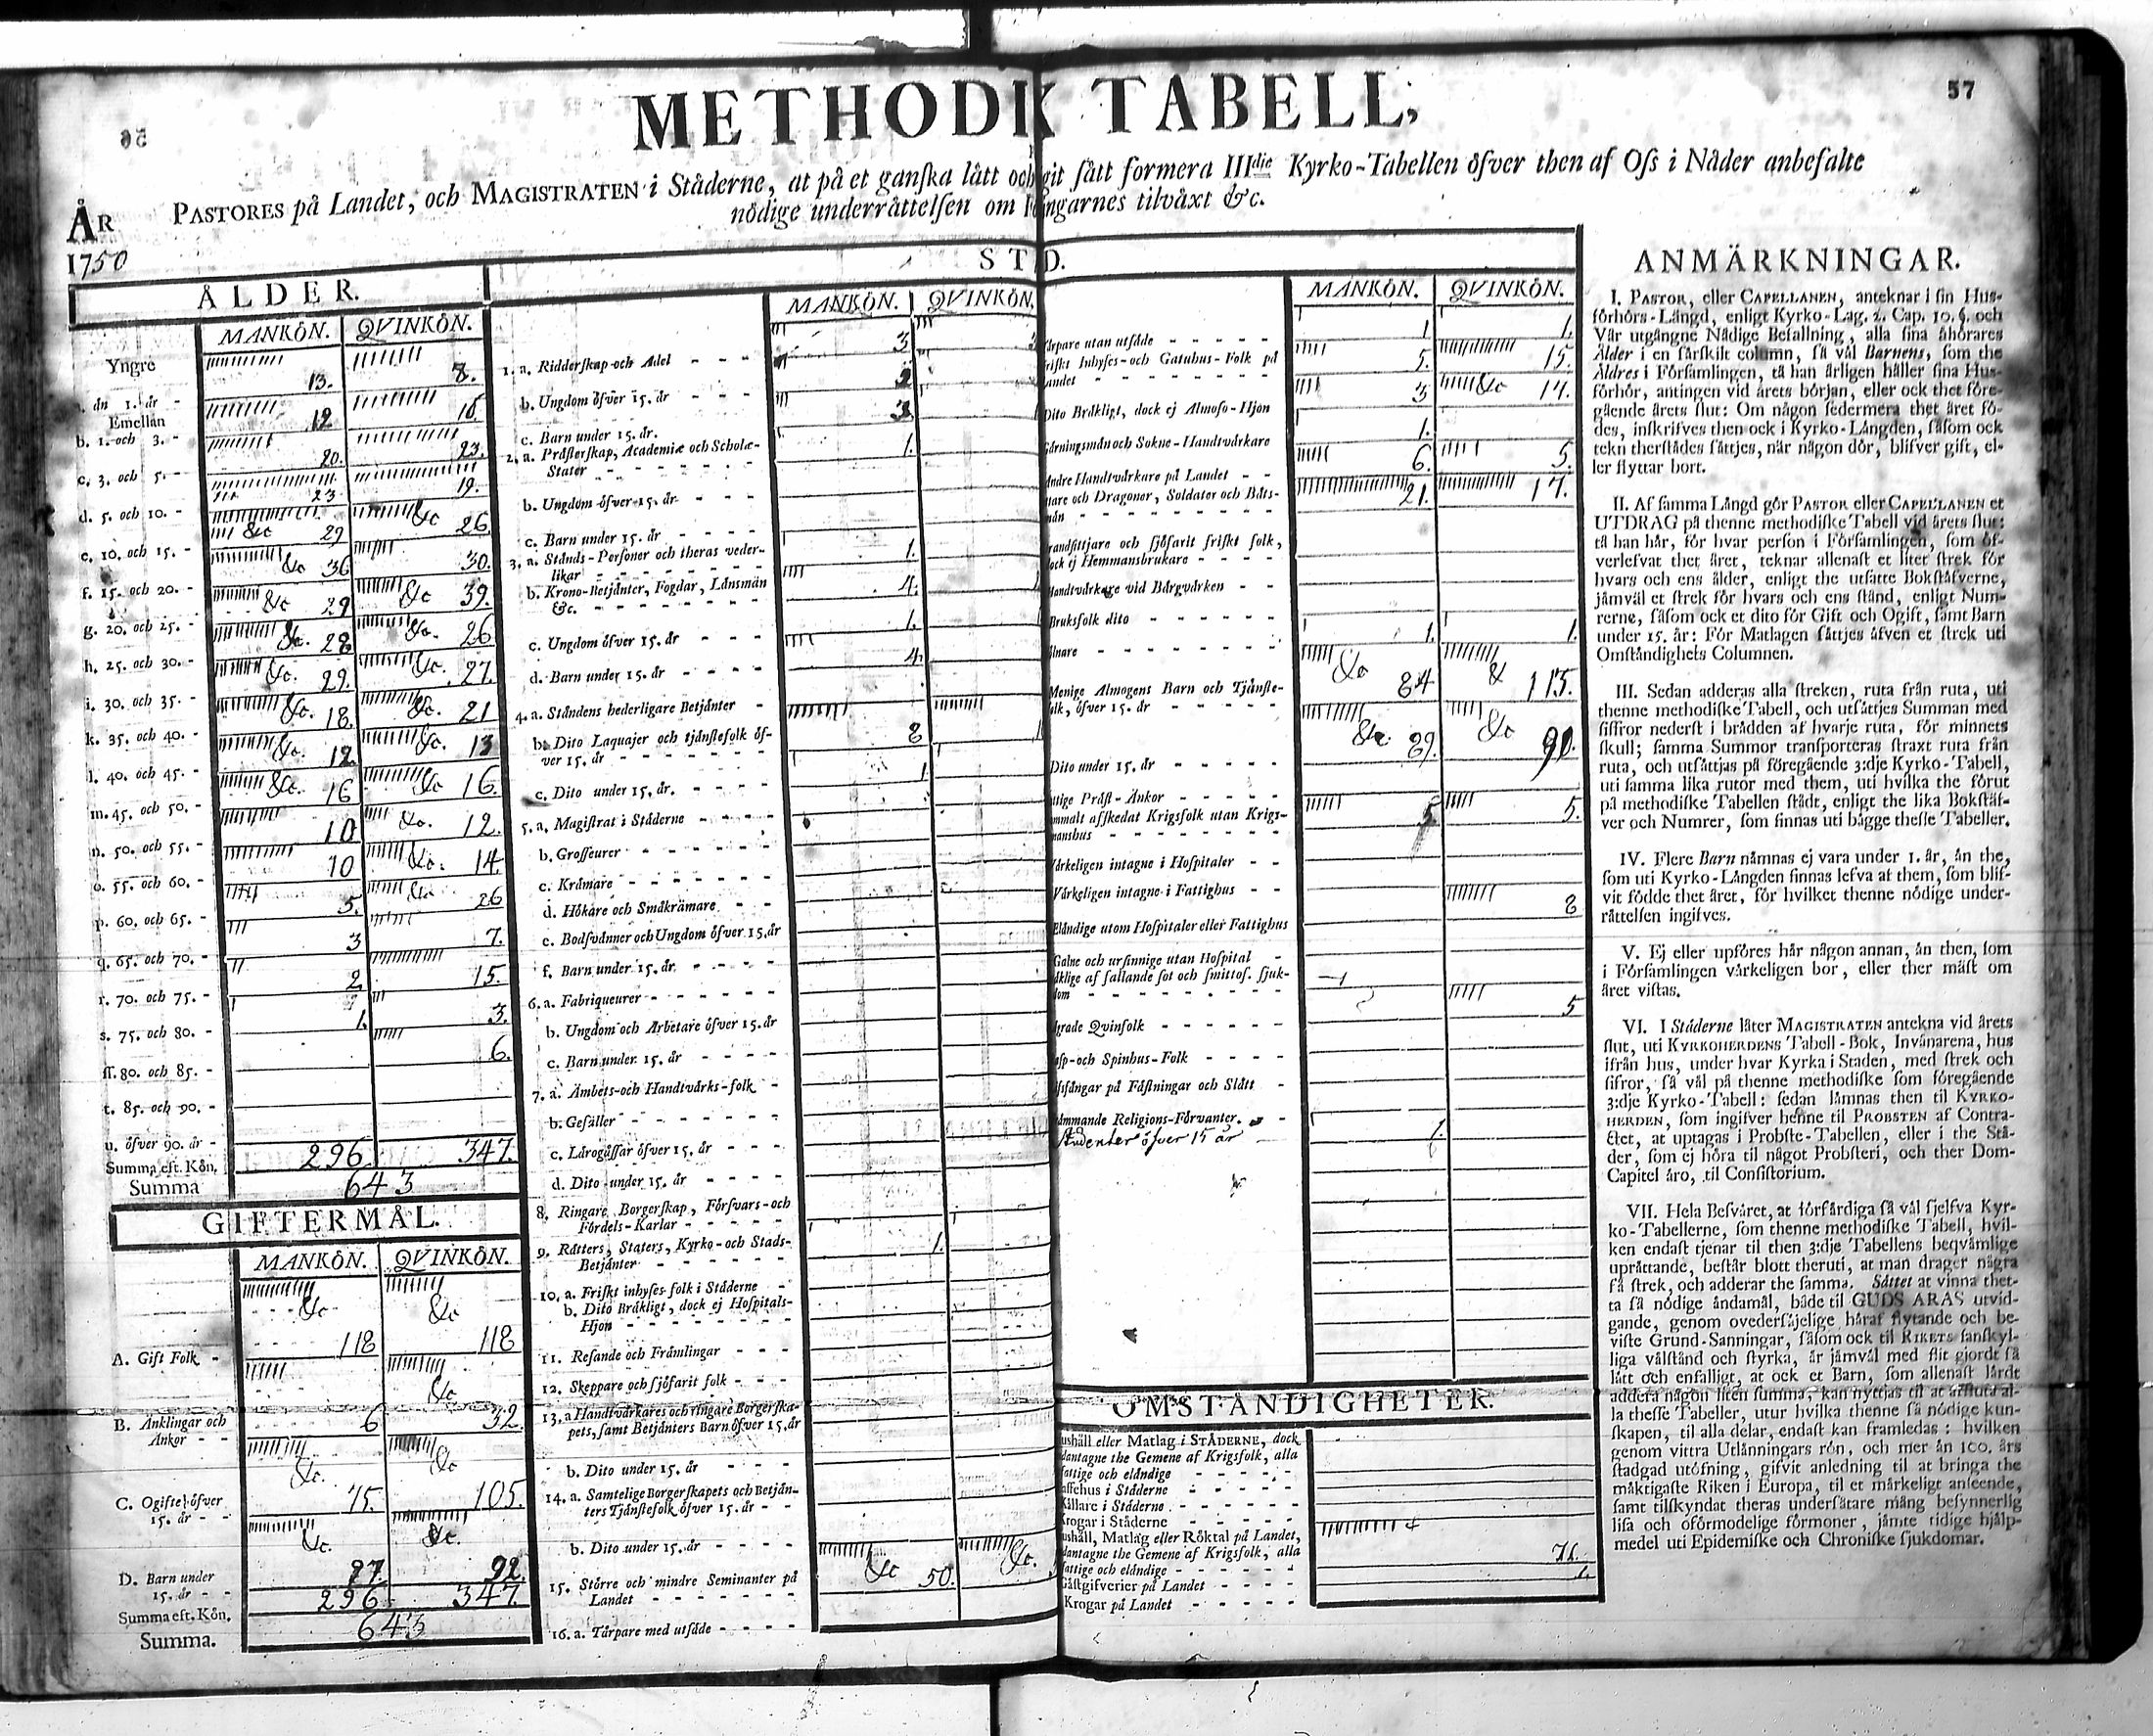 57
56
METHODK TABELL,
ÅR PASTORES på Landet, och MAGISTRATEN i Städerne, at på et ganſka lätt och git ſätt formera IIIdie Kyrko-Tabellen öfver then af Oſs i Nåder anbefalte
nödige underrättelſen om ingarnes tilväxt &c.
1750
ÅLDER.
MANKÖN. QVINKÖN.
Yngre
än 1. år - 13. 8.
Emellan
b. 1. och 3. - 12 16
c. 3. och 5. - 20. 23.
d. 5. och 10. - 23 19.
e. 10. och 15. - &c 29 &c 26
f. 15. och 20. - &c 36 30.
g. 20. och 25. - &c 29 &c 39.
h. 25. och 30. - &c. 28 &c. 26
i. 30. och 35. - &c. 29. &c. 27.
k. 35. och 40. - &c. 18. &c. 21
l. 40. och 45. - &c. 12. &c. 13
m. 45. och 50. - &c. 16 &c 16.
n. 50. och 55. - 10 &c. 12.
o. 55. och 60. - 10 &c. 14.
p. 60. och 65. - 5. &c 26
q. 65. och 70. - 3 7.
r. 70. och 75. - 2. 15.
s. 75. och 80. - 1. 3.
ſſ. 80. och 85. - 6.
t. 85. och 90. -
u. öfver 90. år -
Summa eft. Kön. 296. 347.
Summa 643
GIFTERMÅL.
MANKÖN. QVINKÖN.
&c &c
A. Gift Folk - 118 118
&c
B. Änklingar och 6 32.
Änkor - -
&c. &c
C. Ogifte öfver 75. 105.
15. år - -
&c. &c.
D. Barn under 97. 92.
15. år - -
Summa eft. Kön. 296 347
Summa. 643
STD.
MANKÖN. QVINKÖN.
1. a. Ridderſkap och Adel - - - 3 3
b. Ungdom öfver 15. år - - -
c. Barn under 15. år. 3.
2. a. Präſterſkap, Academiæ och Scholæ- 1.
Stater - - - - - -
b. Ungdom öfver 15. år - - -
c. Barn under 15. år - - - -
3. a. Stånds-Perſoner och theras veder- 1.
likar - - - - - - -
b. Krono-Betjänter, Fogdar, Länsmän 4.
&c. - - - - - - -
c. Ungdom öfver 15. år - - - 1.
d. Barn under 15. år - - - - 4.
4. a. Ståndens hederligare Betjänter -
b. Dito Laquajer och tjänſtefolk öf- 8
ver 15. år - - - - - -
c. Dito under 15. år. - - - - 1.
5. a. Magiſtrat i Städerne - - - -
b. Groſſeurer - - - - - -
c. Krämare - - - - - - -
d. Hökare och Småkrämare. - -
e. Bodſvänner och Ungdom öfver 15. år
f. Barn under 15. år - - - -
6. a. Fabriqueurer - - - - - -
b. Ungdom och Arbetare öfver 15. år
c. Barn under 15. år - - - -
7. a. Ämbets-och Handtvärks-folk -
b. Geſäller - - - - - - -
c. Lärogåſſar öfver 15. år - - -
d. Dito under 15. år - - - -
8. Ringare Borgerſkap, Förſvars-och
Fördels-Karlar - - - - -
9. Rätters, Staters, Kyrko-och Stads- 1.
Betjänter - - - - - -
10. a. Friſkt inhyſes-folk i Städerne -
b. Dito Bräkligt, dock ej Hoſpitals-
Hjon - - - - - - -
11. Reſande och Främlingar - - -
12. Skeppare och ſjöfarit folk - - -
13. a Handtvärkares och ringare Borgerſka-
pets, ſamt Betjänters Barn öfver 15. år
b. Dito under 15. år - - - -
14. a. Samtelige Borgerſkapets och Betjän-
ters Tjänſtefolk öfver 15. år - -
b. Dito under 15. år - - - -
15. Större och mindre Seminanter på &c 50. &c.
Landet - - - - - - -
16. a. Tårpare med utſäde - - - -
MANKÖN. QVINKÖN.
årpare utan utſäde - - - - - 1. 1.
riſkt Inhyſes-och Gatuhus-Folk på 5. 15.
andet - - - - - - -
Dito Bräkligt, dock ej Almoſo-Hjon 3 &c 14.
Gärningsmän och Sokne-Handtvärkare 1.
Andre Handtvärkare på Landet - - 6. 5.
tare och Dragoner, Soldater och Båts- 21. 17.
män - - - - - - - -
randſittjare och ſjöfarit friſkt folk,
ock ej Hemmansbrukare - - -
Handtvärkare vid Bärgvärken - -
Bruksfolk dito - - - - - -
ölnare - - - - - - - 1. 1.
Menige Almogens Barn och Tjänſte- &c 84 & 113.
olk, öfver 15. år - - - - -
Dito under 15. år - - - - - &c. 89. &c 90.
ttige Präſt-Änkor - - - - -
mmalt afſkedat Krigsfolk utan Krigs- 5. 5.
manshus - - - - - - -
Värkeligen intagne i Hoſpitaler - -
Värkeligen intagne i Fattighus - -
Eländige utom Hoſpitaler eller Fattighus 8
Galne och urſinnige utan Hoſpital -
äklige af fallande ſot och ſmittoſ. ſjuk-
dom - - - - - - - - 5
ägrade Qvinfolk - - - - - -
aſp-och Spinhus-Folk - - - -
fsfångar på Fäſtningar och Slått -
ämmande Religions-Förvanter. - -
Studenter öfver 15 år 1.
OMSTÄNDIGHETER.
ushåll eller Matlag i STÄDERNE, dock
dantagne the Gemene af Krigsfolk, alla
fattige och eländige - - - - -
affehus i Städerne - - - - -
Källare i Städerne - - - - - -
Krogar i Städerne - - - - -
ushåll, Matlag eller Röktal på Landet,
dantagne the Gemene af Krigsfolk, alla
fattige och eländige - - - - - 71.
Gäſtgifverier på Landet - - - - 1.
Krogar på Landet - - - - -
ANMÄRKNINGAR.
I. PASTOR, eller CAPELLANEN, anteknar i ſin Hus-
förhörs-Längd, enligt Kyrko-Lag. 2. Cap. 10. §. och
Vår utgångne Nådige Befallning, alla ſina åhörares
Ålder i en ſärſkilt column, ſå väl Barnens, ſom the
Äldres i Förſamlingen, tå han årligen håller ſina Hus-
förhör, antingen vid årets början, eller ock thet före-
gående årets ſlut: Om någon ſedermera thet året fö-
des, inſkrifves then ock i Kyrko-Längden, ſåſom ock
tekn therſtädes ſättjes, när någon dör, blifver gift, el-
ler flyttar bort.
II. Af ſamma Längd gör PASTOR eller CAPELLANEN et
UTDRAG på thenne methodiſke Tabell vid årets ſlut:
tå han här, för hvar perſon i Förſamlingen, ſom öf-
verlefvat thet året, teknar allenaſt et litet ſtrek för
hvars och ens ålder, enligt the utſatte Bokſtäfverne,
jämväl et ſtrek för hvars och ens ſtånd, enligt Num-
rerne, ſåſom ock et dito för Gift och Ogift, ſamt Barn
under 15. år: För Matlagen ſättjes äfven et ſtrek uti
Omſtändighets Columnen.
III. Sedan adderas alla ſtreken, ruta från ruta, uti
thenne methodiſke Tabell, och utſättjes Summan med
ſiffror nederſt i brädden af hvarje ruta, för minnets
ſkull; ſamma Summor transporteras ſtraxt ruta från
ruta, och utſättjas på föregående 3:dje Kyrko-Tabell,
uti ſamma lika rutor med them, uti hvilka the förut
på methodiſke Tabellen ſtådt, enligt the lika Bokſtäf-
ver och Numrer, ſom finnas uti bägge theſſe Tabeller.
IV. Flere Barn nämnas ej vara under 1. år, än the,
ſom uti Kyrko-Längden finnas lefva af them, ſom blif-
vit födde thet året, för hvilket thenne nödige under-
rättelſen ingifves.
V. Ej eller upföres här någon annan, än then, ſom
i Förſamlingen värkeligen bor, eller ther mäſt om
året viſtas.
VI. I Städerne låter MAGISTRATEN antekna vid årets
ſlut, uti KYRKOHERDENS Tabell-Bok, Invånarena, hus
ifrån hus, under hvar Kyrka i Staden, med ſtrek och
ſifror, ſå väl på thenne methodiſke ſom föregående
3:dje Kyrko-Tabell: ſedan lämnas then til KYRKO-
HERDEN, ſom ingifver henne til PROBSTEN af Contra-
ctet, at uptagas i Probſte-Tabellen, eller i the Stä-
der, ſom ej höra til något Probſteri, och ther Dom-
Capitel äro, til Conſiſtorium.
VII. Hela Beſväret, at förfärdiga ſå väl ſjelfva Kyr-
ko-Tabellerne, ſom thenne methodiſke Tabell, hvil-
ken endaſt tjenar til then 3:dje Tabellens beqvämlige
uprättande, beſtår blott theruti, at man drager några
få ſtrek, och adderar the ſamma. Sättet at vinna thet-
ta ſå nödige ändamål, både til GUDS ÄRAS utvid-
gande, genom ovederſäjelige häraf flytande och be-
viſte Grund-Sanningar, ſåſom ock til RIKETS ſanſkyl-
liga välſtånd och ſtyrka, är jämväl med flit gjordt ſå
lätt och enfalligt, at ock et Barn, ſom allenaſt lärdt
addera någon liten ſumma, kan nyttjas til at afſluta al-
la theſſe Tabeller, utur hvilka thenne ſå nödige kun-
ſkapen, til alla delar, endaſt kan framledas: hvilken
genom vittra Utlänningars rön, och mer än 100. års
ſtadgad utöfning, gifvit anledning til at bringa the
mäktigaſte Riken i Europa, til et märkeligt anſeende,
ſamt tilſkyndat theras underſåtare mång beſynnerlig
liſa och oförmodelige förmoner, jämte tidige hjälp-
medel uti Epidemiſke och Chroniſke ſjukdomar.